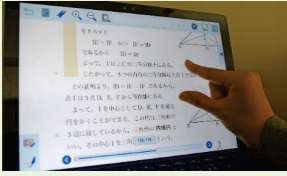 を下ろすと
IE=IF かつ IF=ID
であるから ID=IE
よって，Iは∠Cの二等分線上にある。
したがって，3つの内角の二等分線は1点で
この証明より，ID=IE=IF であるから，
点Iは3点D，E，Fから等距離にある。
よって，Iを中心としてD，E，Fを通る
円をかくことができる。この円は三角形の
3辺に接しているから，三角形の内接円と
いい，その中心Iを三角 という。